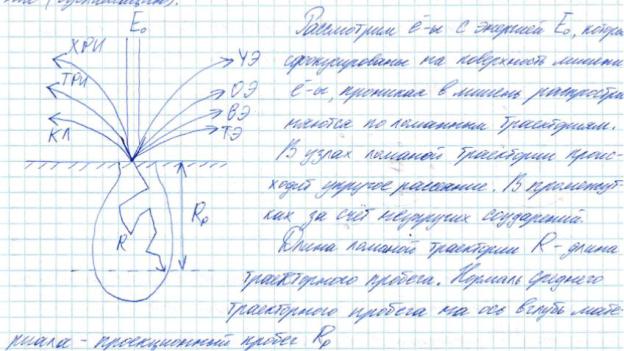 E₀
ХРИ
ТРИ
КЛ
УЭ
ОЭ
ВЭ
ТЭ
R
Rр
Рассмотрим ē-ы с энергией E₀, которы
сфокусированы на поверхность мишени
ē-ы, проникая в мишень распростра
няются по ломанным траекториям.
В узлах ломаной траектории проис-
ходит упругое рассеяние. В промежут-
ках за счёт неупругих соударений.
Длина ломаной траектории R - длина
траекторного пробега. Нормаль среднего
траекторного пробега на ось вглубь мате-
риала - проекционный пробег Rр